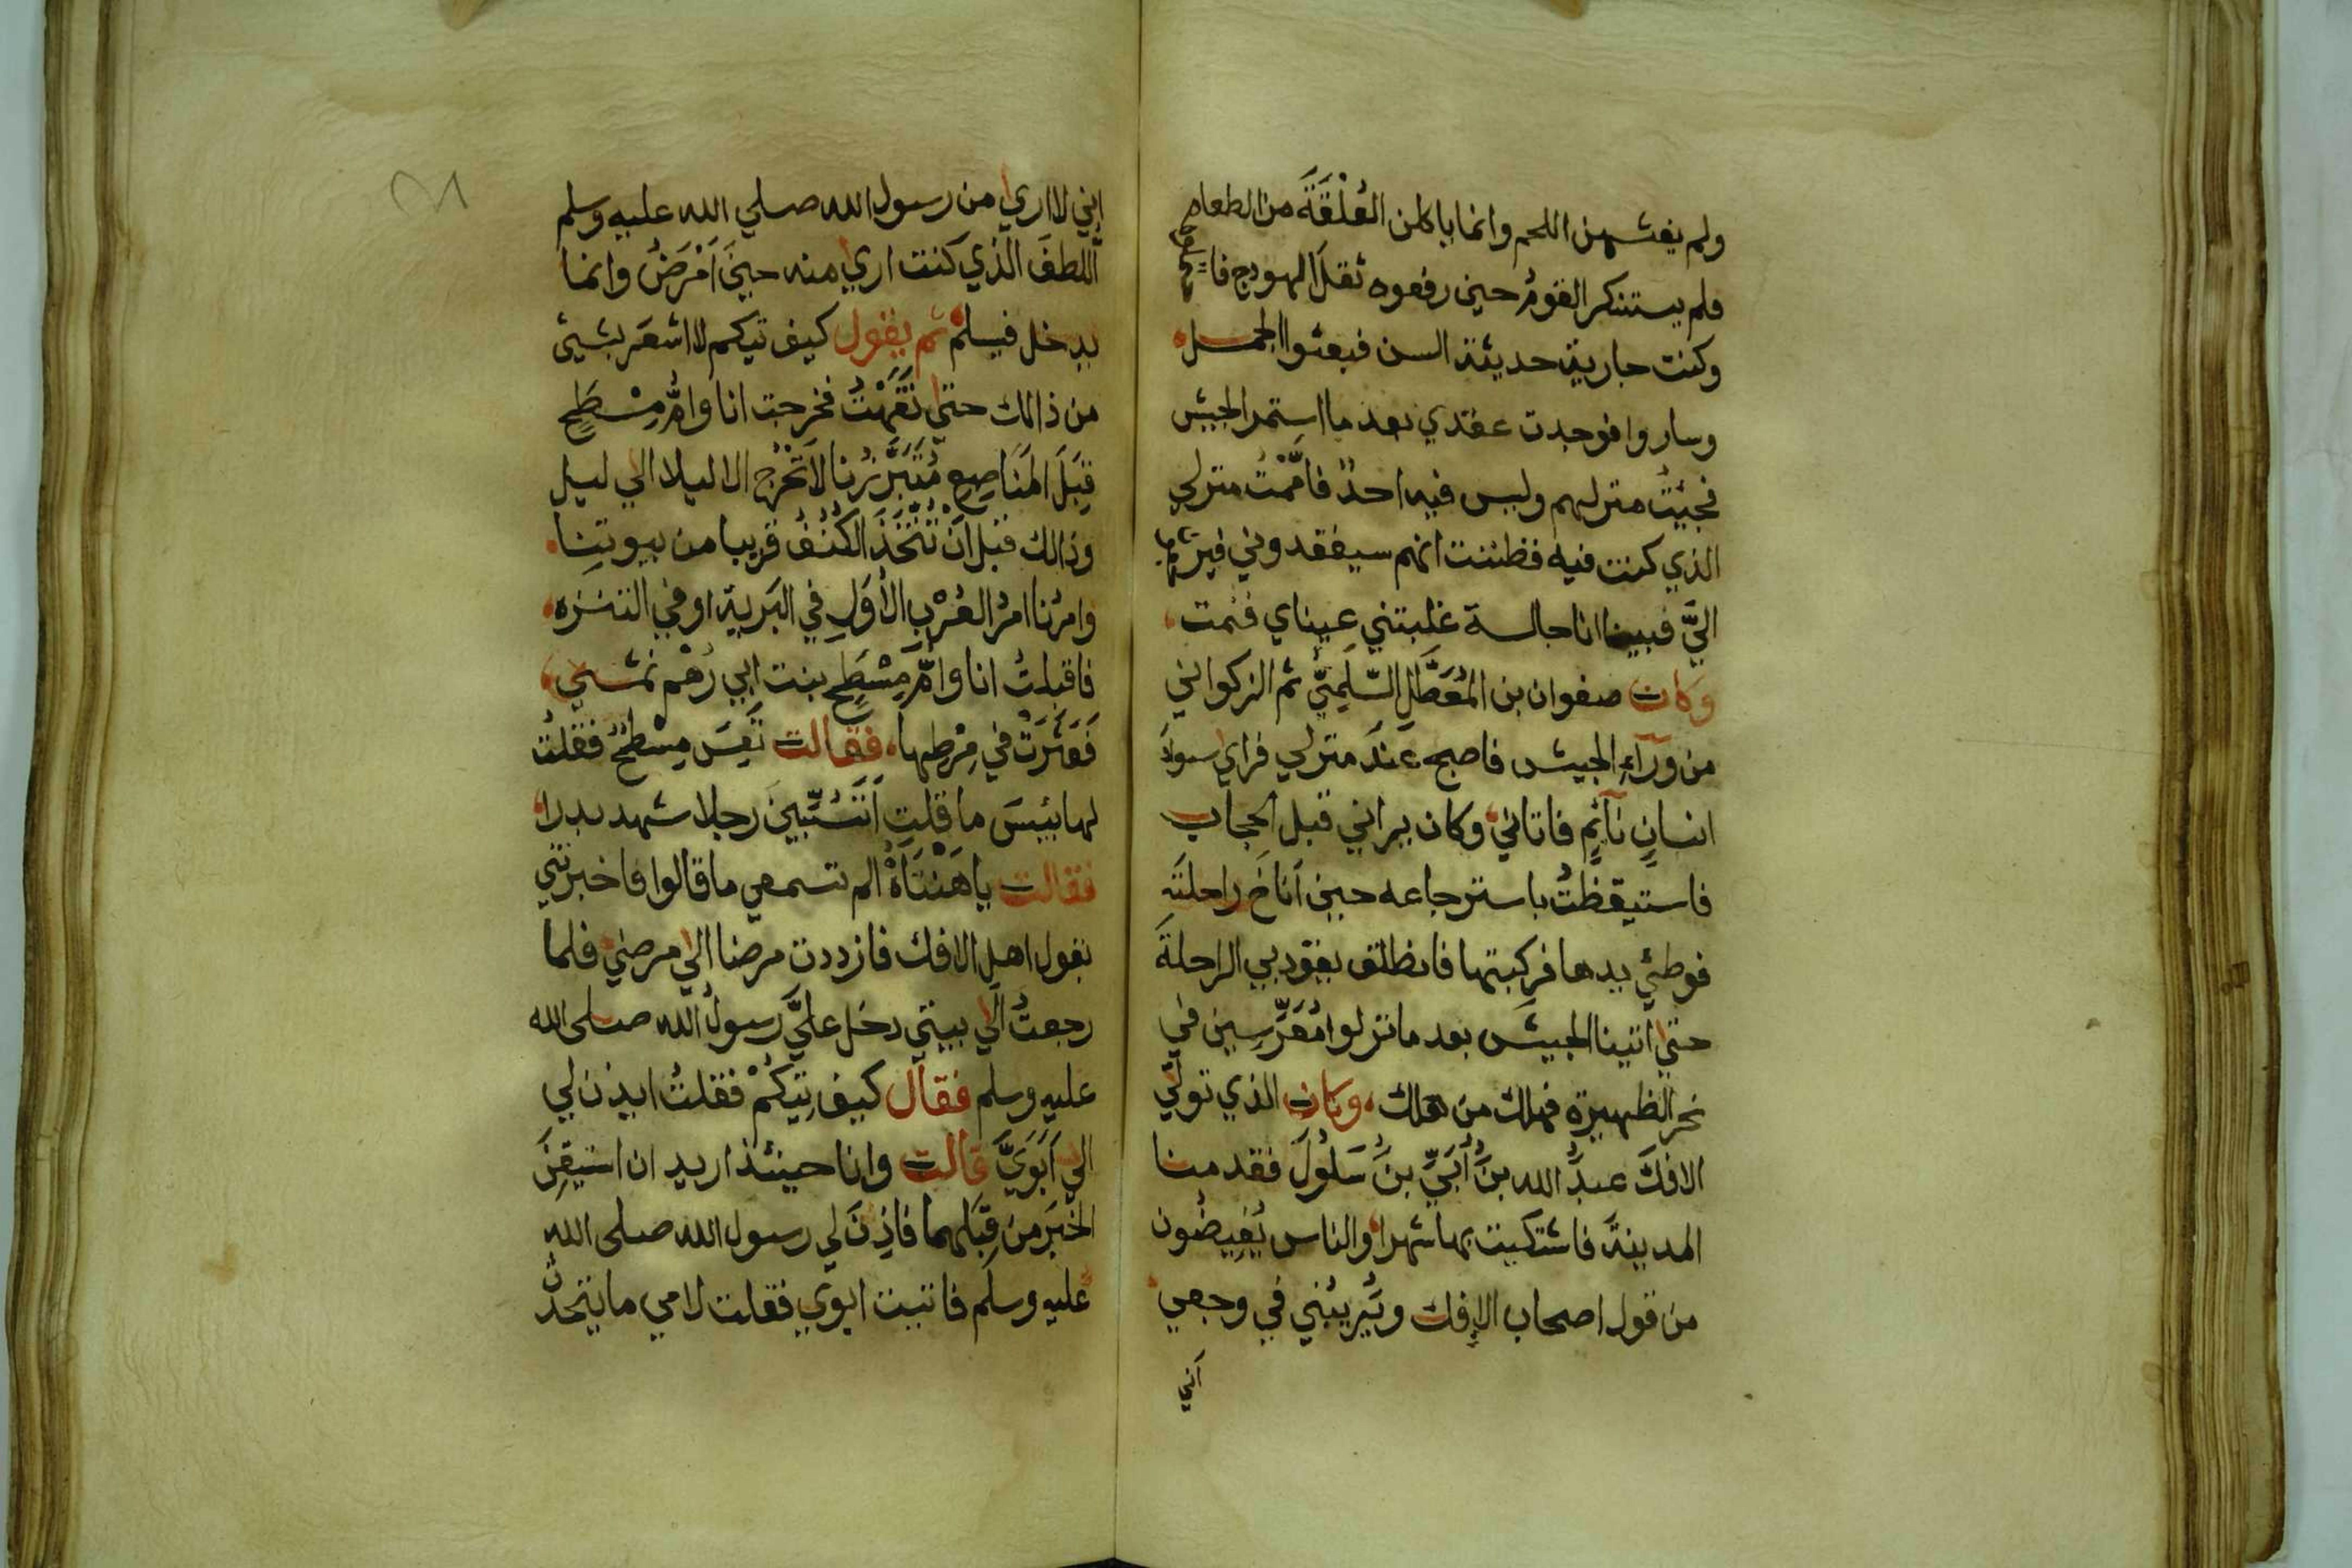 ولم يغشهن اللحم وانما ياكلن العُلْقَةَ من الطعام
فلم يستنكر القومُ حين رفعوه ثقلَ الهودج فاحتملوه
وكنت جارية حديثة السن فبعثوا الجمل
وساروا فوجدت عقدي بعد ما استمر الجيش
فجيئتُ منزلهم وليس فيه احدٌ فامَّمْتُ منزلي
الذي كنت فيه فظننت انهم سيفقدوني فيرجعون
اليَّ فبينا انا جالسة غلبتني عيناي فنمت
وكان صفوان بن المُعَطَّلِ السُّلَمِيُّ ثم الزكواني
من وَرَآءِ الجيش فاصبح عند منزلي فراي سواد
انسانٍ نآئمٍ فاتاني وكان يراني قبل الحجاب
فاستيقظتُ باسترجاعه حين اَناخَ راحلتَه
فوطئ يدها فركبتها فانطلق يقود بي الراحلةَ
حتي اتينا الجيش بعد ما نزلوا مُعَرِّسِين في
نحر الظهيرة فهلك من هلك وكان الذي تولي
الافكَ عبدُ الله بنُ أُبَيِّ بنُ سَلُولَ فقدمنا
المدينةَ فاشتكيت بها شهرا والناس يُفِيضُون
من قول اصحاب الإفك ويَرِيبُني في وجعي
اَني
إني لا اري من رسول الله صلي الله عليه وسلم
اللطفَ الذي كنت اري منه حين اَمْرَضُ وانما
يدخل فيسلم ثم يقول كيف تيكم لا اشعر بشيئ
من ذالك حتي نَقَهْتُ فخرجت انا وامُّ مِسْطَحٍ
قِبَلَ المَنَاصِعِ مُتَبَرَّزُنا لاَ نَخْرُج الا ليلا الي ليل
وذالك قبل اَنْ نَتَّخِذَ الكُنُفُ قريبا من بيوتنا
وامرُنا امرُ العُرْبِ الأوَلِ في البَرية او في التنزه
فاقبلتُ انا وامُّ مِسْطَحٍ بنت ابي رُهْم نمشي
فَعَثَرَتْ في مِرْطِها فقالت تَعِسَ مِسْطَحٌ فقلتُ
لها بئيسَ ما قلتِ اَتَسُبِّينَ رجلا شهد بدرا
فقالت ياهَنْتَاهْ الم تسمعي ما قالوا فاخبرتني
بقول اهل الافك فازددت مرضا الي مرضي فلما
رجعتُ الَي بيتي دخل عليَّ رسولُ الله صلى الله
عليه وسلم فقال كيف تِيكُمْ فقلتُ ايذن لي
الي اَبَوَيَّ قالت وانا حينئذ اريد ان استيقِنَ
الخبَرَ من قِبَلِهما فاذِنَ لي رسول الله صلى الله
عليه وسلم فاتيت ابوي فقلت لامي ما يتحدث